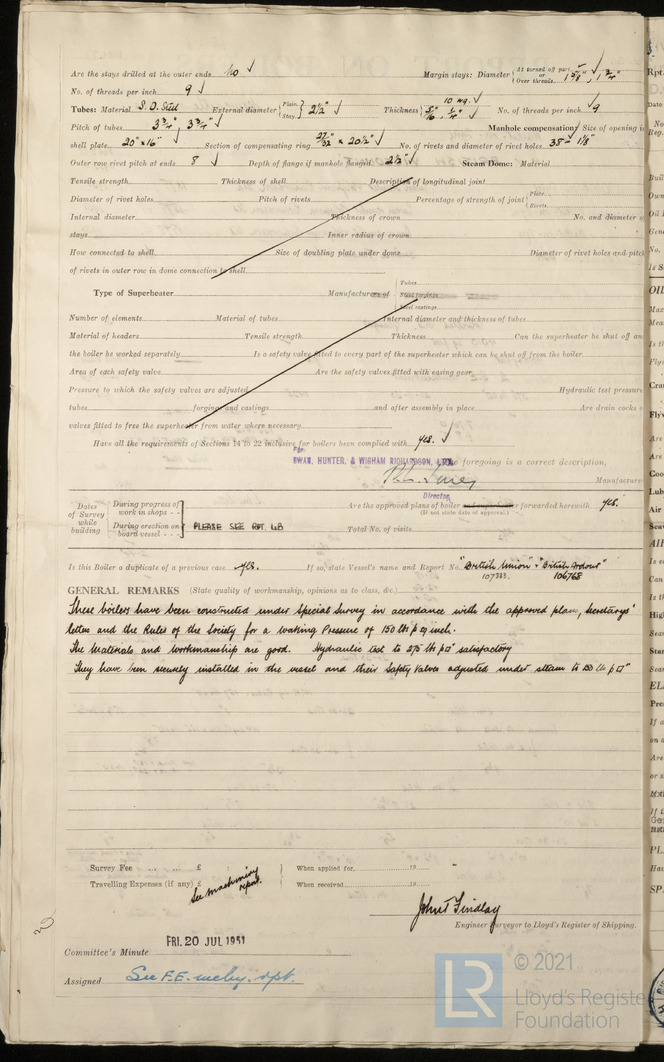 Are the stays drilled at the outer ends No ✓ Margin stays: Diameter { At turned off part, or Over threads 1 5/8" ✓ 1 3/4"
No. of threads per inch 9 ✓
Tubes: Material S.D. Steel External diameter { Plain Stay } 2 1/2" ✓ Thickness { 10 W.G. 5/16", 1/4" ✓ No. of threads per inch ✓9
Pitch of tubes 3 3/4" , 3 3/4" ✓ Manhole compensation: Size of opening in
shell plate 20" × 16" ✓ Section of compensating ring 27/32" × 20 1/2" ✓ No. of rivets and diameter of rivet holes 38 - 1 1/8"
Outer row rivet pitch at ends 8 ✓ Depth of flange if manhole flanged 2 1/2" ✓ Steam Dome: Material
Tensile strength Thickness of shell Description of longitudinal joint
Diameter of rivet holes Pitch of rivets Percentage of strength of joint { Plate Rivets
Internal diameter Thickness of crown No. and diameter o
stays Inner radius of crown
How connected to shell Size of doubling plate under dome Diameter of rivet holes and pitch
of rivets in outer row in dome connection to shell
Type of Superheater Manufacturers of { Tubes Steel castings
Number of elements Material of tubes Internal diameter and thickness of tubes
Material of headers Tensile strength Thickness Can the superheater be shut off an
the boiler be worked separately Is a safety valve fitted to every part of the superheater which can be shut off from the boiler
Area of each safety valve Are the safety valves fitted with easing gear
Pressure to which the safety valves are adjusted Hydraulic test pressure
tubes forgings and castings and after assembly in place Are drain cocks o
valves fitted to free the superheater from water where necessary
Have all the requirements of Sections 14 to 22 inclusive for boilers been complied with Yes. ✓
For
SWAN, HUNTER, & WIGHAM RICHARDSON, LTD. The foregoing is a correct description,
Manufacturer
Director
Dates of Survey while building { During progress of work in shops - - During erection on board vessel - - - } PLEASE SEE RPT. 4B
Are the approved plans of boiler and superheater forwarded herewith Yes.
(If not state date of approval.)
Total No. of visits
Is this Boiler a duplicate of a previous case Yes. If so, state Vessel's name and Report No. "British Union" & "British Ardour"
107383. 106768
GENERAL REMARKS (State quality of workmanship, opinions as to class, &c.)
These boilers have been constructed under Special Survey in accordance with the approved plans, Secretarys'
letters and the Rules of the Society for a working Pressure of 150 lbs p sq inch.
The Materials and workmanship are good. Hydraulic test to 275 lbs p □" satisfactory
They have been securely installed in the vessel and their Safety Valves adjusted under steam to 150 lb p □"
Survey Fee ... ... £ When applied for 19
Travelling Expenses (if any) £ When received 19
See machinery rept.
John T Findlay
Engineer Surveyor to Lloyd's Register of Shipping.
FRI. 20 JUL 1951
Committee's Minute
Assigned See F.E. mchy. rpt.
LR
© 2021
Lloyd's Registe
Foundation